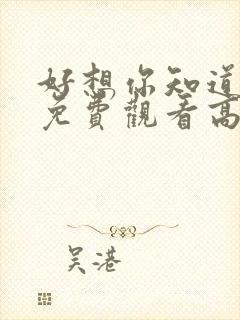 好想你知道
免費觀看高
吴港